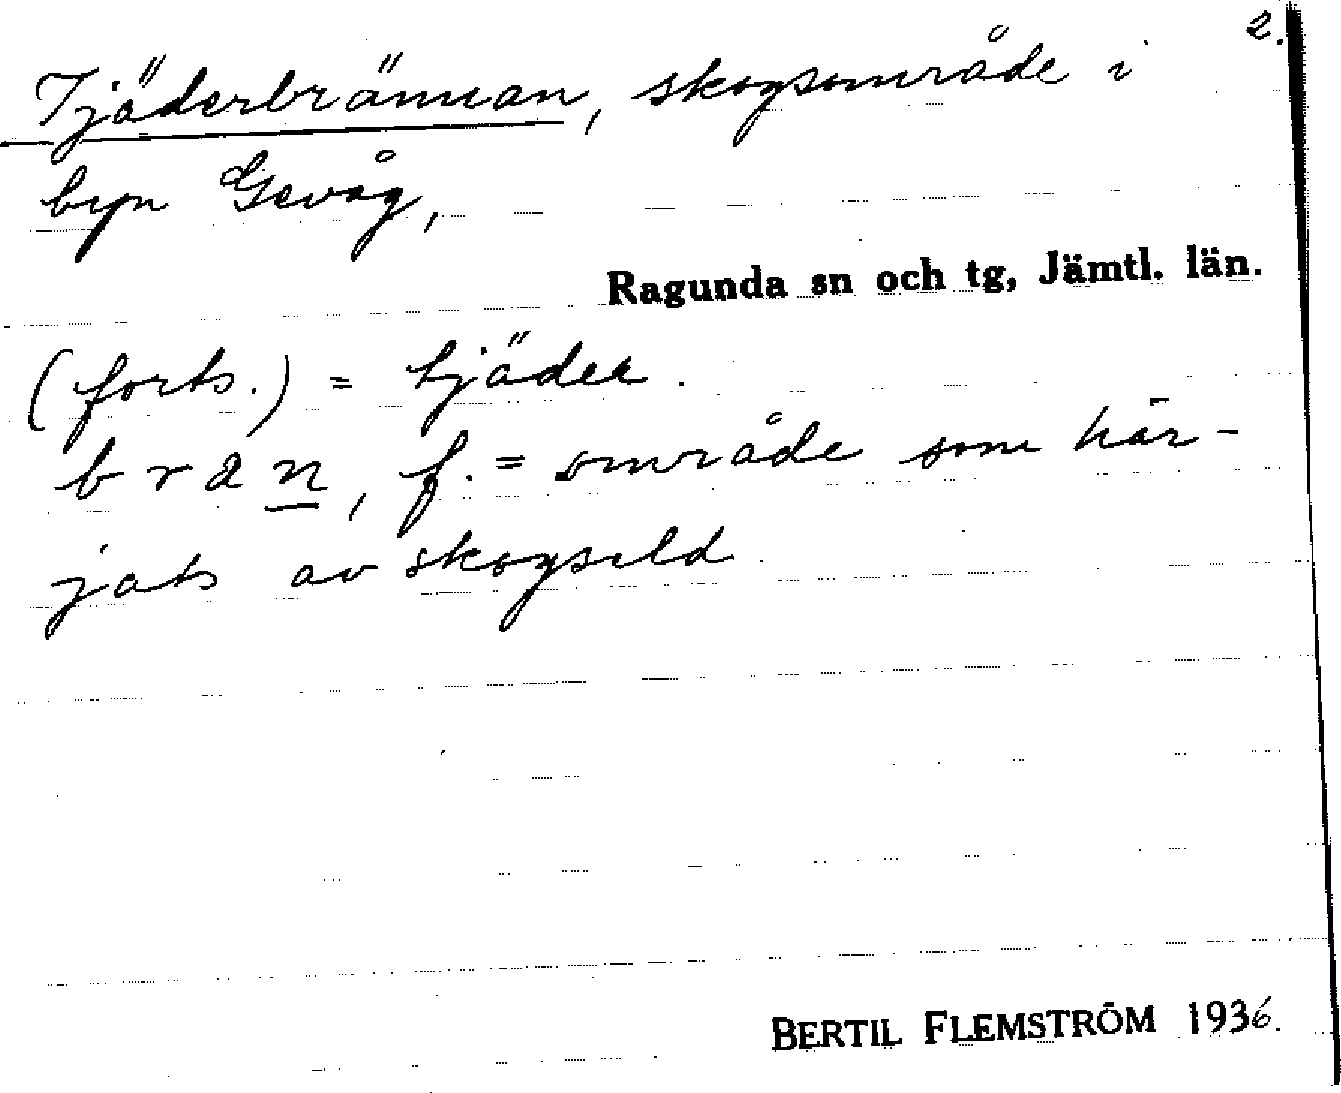 2.
Tjäderbrännan, skogsområde i
byn Gevåg,
Ragunda sn och tg, Jämtl. län.
(forts.) = tjäder.
bran, f. = område som här-
jats av skogseld
BERTIL FLEMSTRÖM 1936.